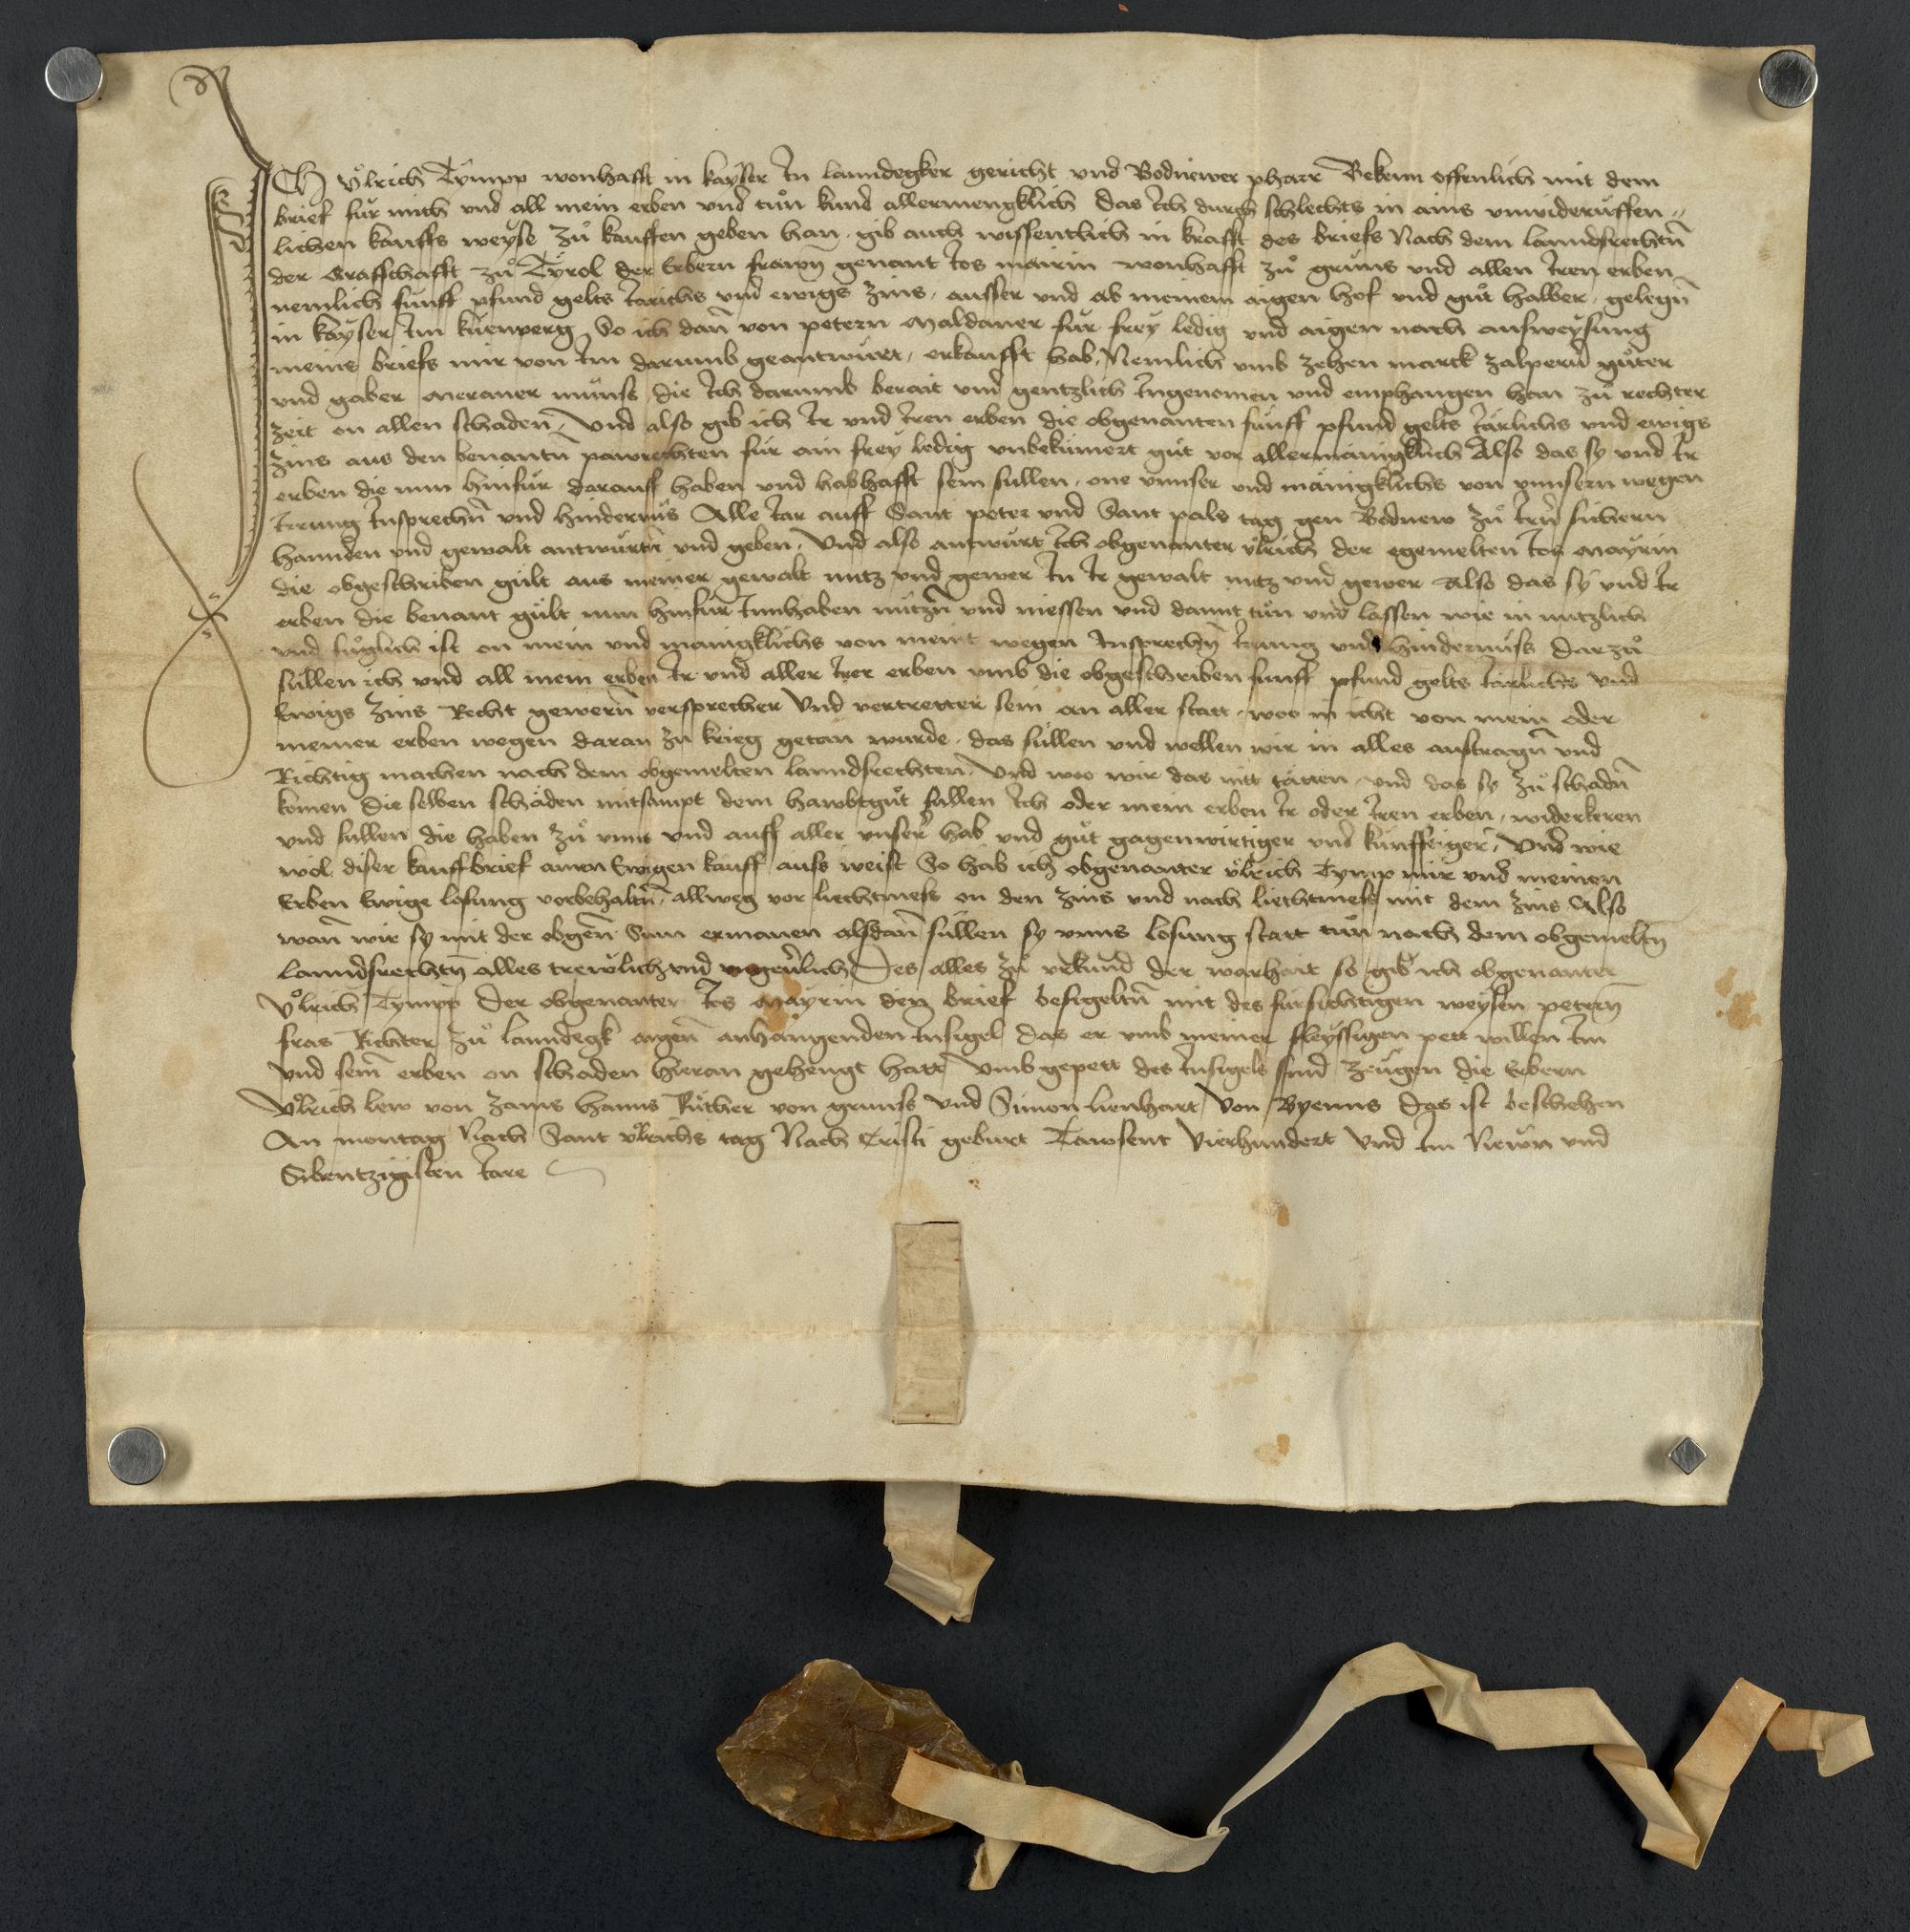 Ich Ůlrich Tympp wonhafft in kaẏser In lanndegker gericht vnd Bodnewer pharr Bekenn offennlich mit dem
brief für mich vnd all mein erben vnd tůn kund allermengklich das Ich durch schlechts in ains vnwiderüffen=
lichen kauffs weyse zů kauffen geben han · gib auch wissentlich in krafft des briefs Nach dem lanndsrechtn̄
der Graffschafft zů Tyrol der Erbern frawn̄ genant Jos mairin wonhafft zů gruns vnd allen Iren erben
nemlich funff pfund gelts Iärichs vnd ewigs zins · ausser vnd ab meinem aigen hof vnd gůt halber · gelegn̄
in kayser Im küenperg So ich dan̄ von petern Maldaner für frey ledig vnd aigen nach ausweysung
meins briefs mir von Im darumb geantwürt / erkaufft hab · Nemlich vmb zehen marck zalpern̄ gůter
vnd gaber Meraner münss die Ich darumb berait vnd gentzlich Ingenomen vnd emphangen han zů rechter
zeit on allen schaden / Vnd also gib ich Ir vnd Iren erben die obgenanten funff pfund gelts Iärlichs vnd ewigs
zins aus den benantn̄ pawrechten für ain frey ledig vnbekümert gůt vor allermänigklich Also das sy vnd Ir
erben die nun hinfür darauff haben vnd habhafft sein sullen · one vnnser vnd mänigklichs von vnnsern wegen
Irrung Insprechn̄ vnd hindernüs Alle Iar auff Sant peter vnd Sant pals tag gen Bodnew zů Irn̄ sichern
hannden vnd gewalt antwurtn̄ vnd geben · Vnd also antwürt Ich obgenanter ůlrich der egemelten Jos Mayrin
die obgeschriben gült aus meiner gewalt nutz vnd gewer In Ir gewalt nutz vnd gewer Also das sy vnd Ir
erben die benant gült nun hinfür Innhaben nützn̄ vnd niessen vnd damit tůn vnd lassen wie in nutzlich
vnd füglich ist on mein vnd mänigklichs von meint wegen Insprechn̄ Irrung vnd hindernüss darzů
süllen ich vnd all mein erben Ir vnd aller Irer erben vmb die obgeschriben funff pfund gelts Iärlichs Vnd
Ewigs zins Recht gewern̄ versprecher Vnd vertretter sein an aller statt · woo in icht von mein oder
meiner erben wegen daran zů krieg getan wurde · das süllen vnd wellen wir in alles austragn̄ vnd
Richtig machen nach dem obgemelten lanndsrechten Vnd woo wir das nitt tätten · vnd das sy zů schadn̄
komen die selben schäden mitsampt dem hawbtgůt sullen Ich oder mein erben Ir oder Iren erben · widerkeren
vnd sullen die haben zů vnns vnd auff aller vnser̄ hab vnd gůt gagenwirtiger vnd künfftiger̄ / Vnd wie
wol diser kauffbrief ainen Ewigen kauff auss weist So hab ich obgenanter ůlrich Tymp mir vnd meinen
Erben Ewige losung vorbehaltn̄ / allweg vor liechtmess on den zins vnd nach liechtmess mit dem zins Also
wan̄ wir sy mit der obgen̄ Sum ermanen alsdan̄ süllen sy vnns losung statt tůn nach dem obgemeltn̄
lanndsrechtn̄ alles trewlich vnd vngeuerlich Des alles zů vrkund der warhait so gib ich obgenanter
Ůlrich Tympp Der obgenanten Jos Mayrin den brief besigeltn̄ mit des fürsichtigen weysen petern̄
fras Richter zů lanndegk aigen̄ anhangenden Insigel das er vmb meiner fleyssigen pett willen Im
vnd sein̄ erben on schaden hieran gehengt hatt Vmb gepett des Insigels sind zeugen die Erbern
Ůlrich lew von zams hanns Rüther von grunss Vnd Simon lienhart Von Byenns Das ist beschehen
An montag Nach Sant ůlrichs tag Nach Cristi geburt Tawsent Vierhundert Vnd Im Newn vnd
Sibentzigisten Iare